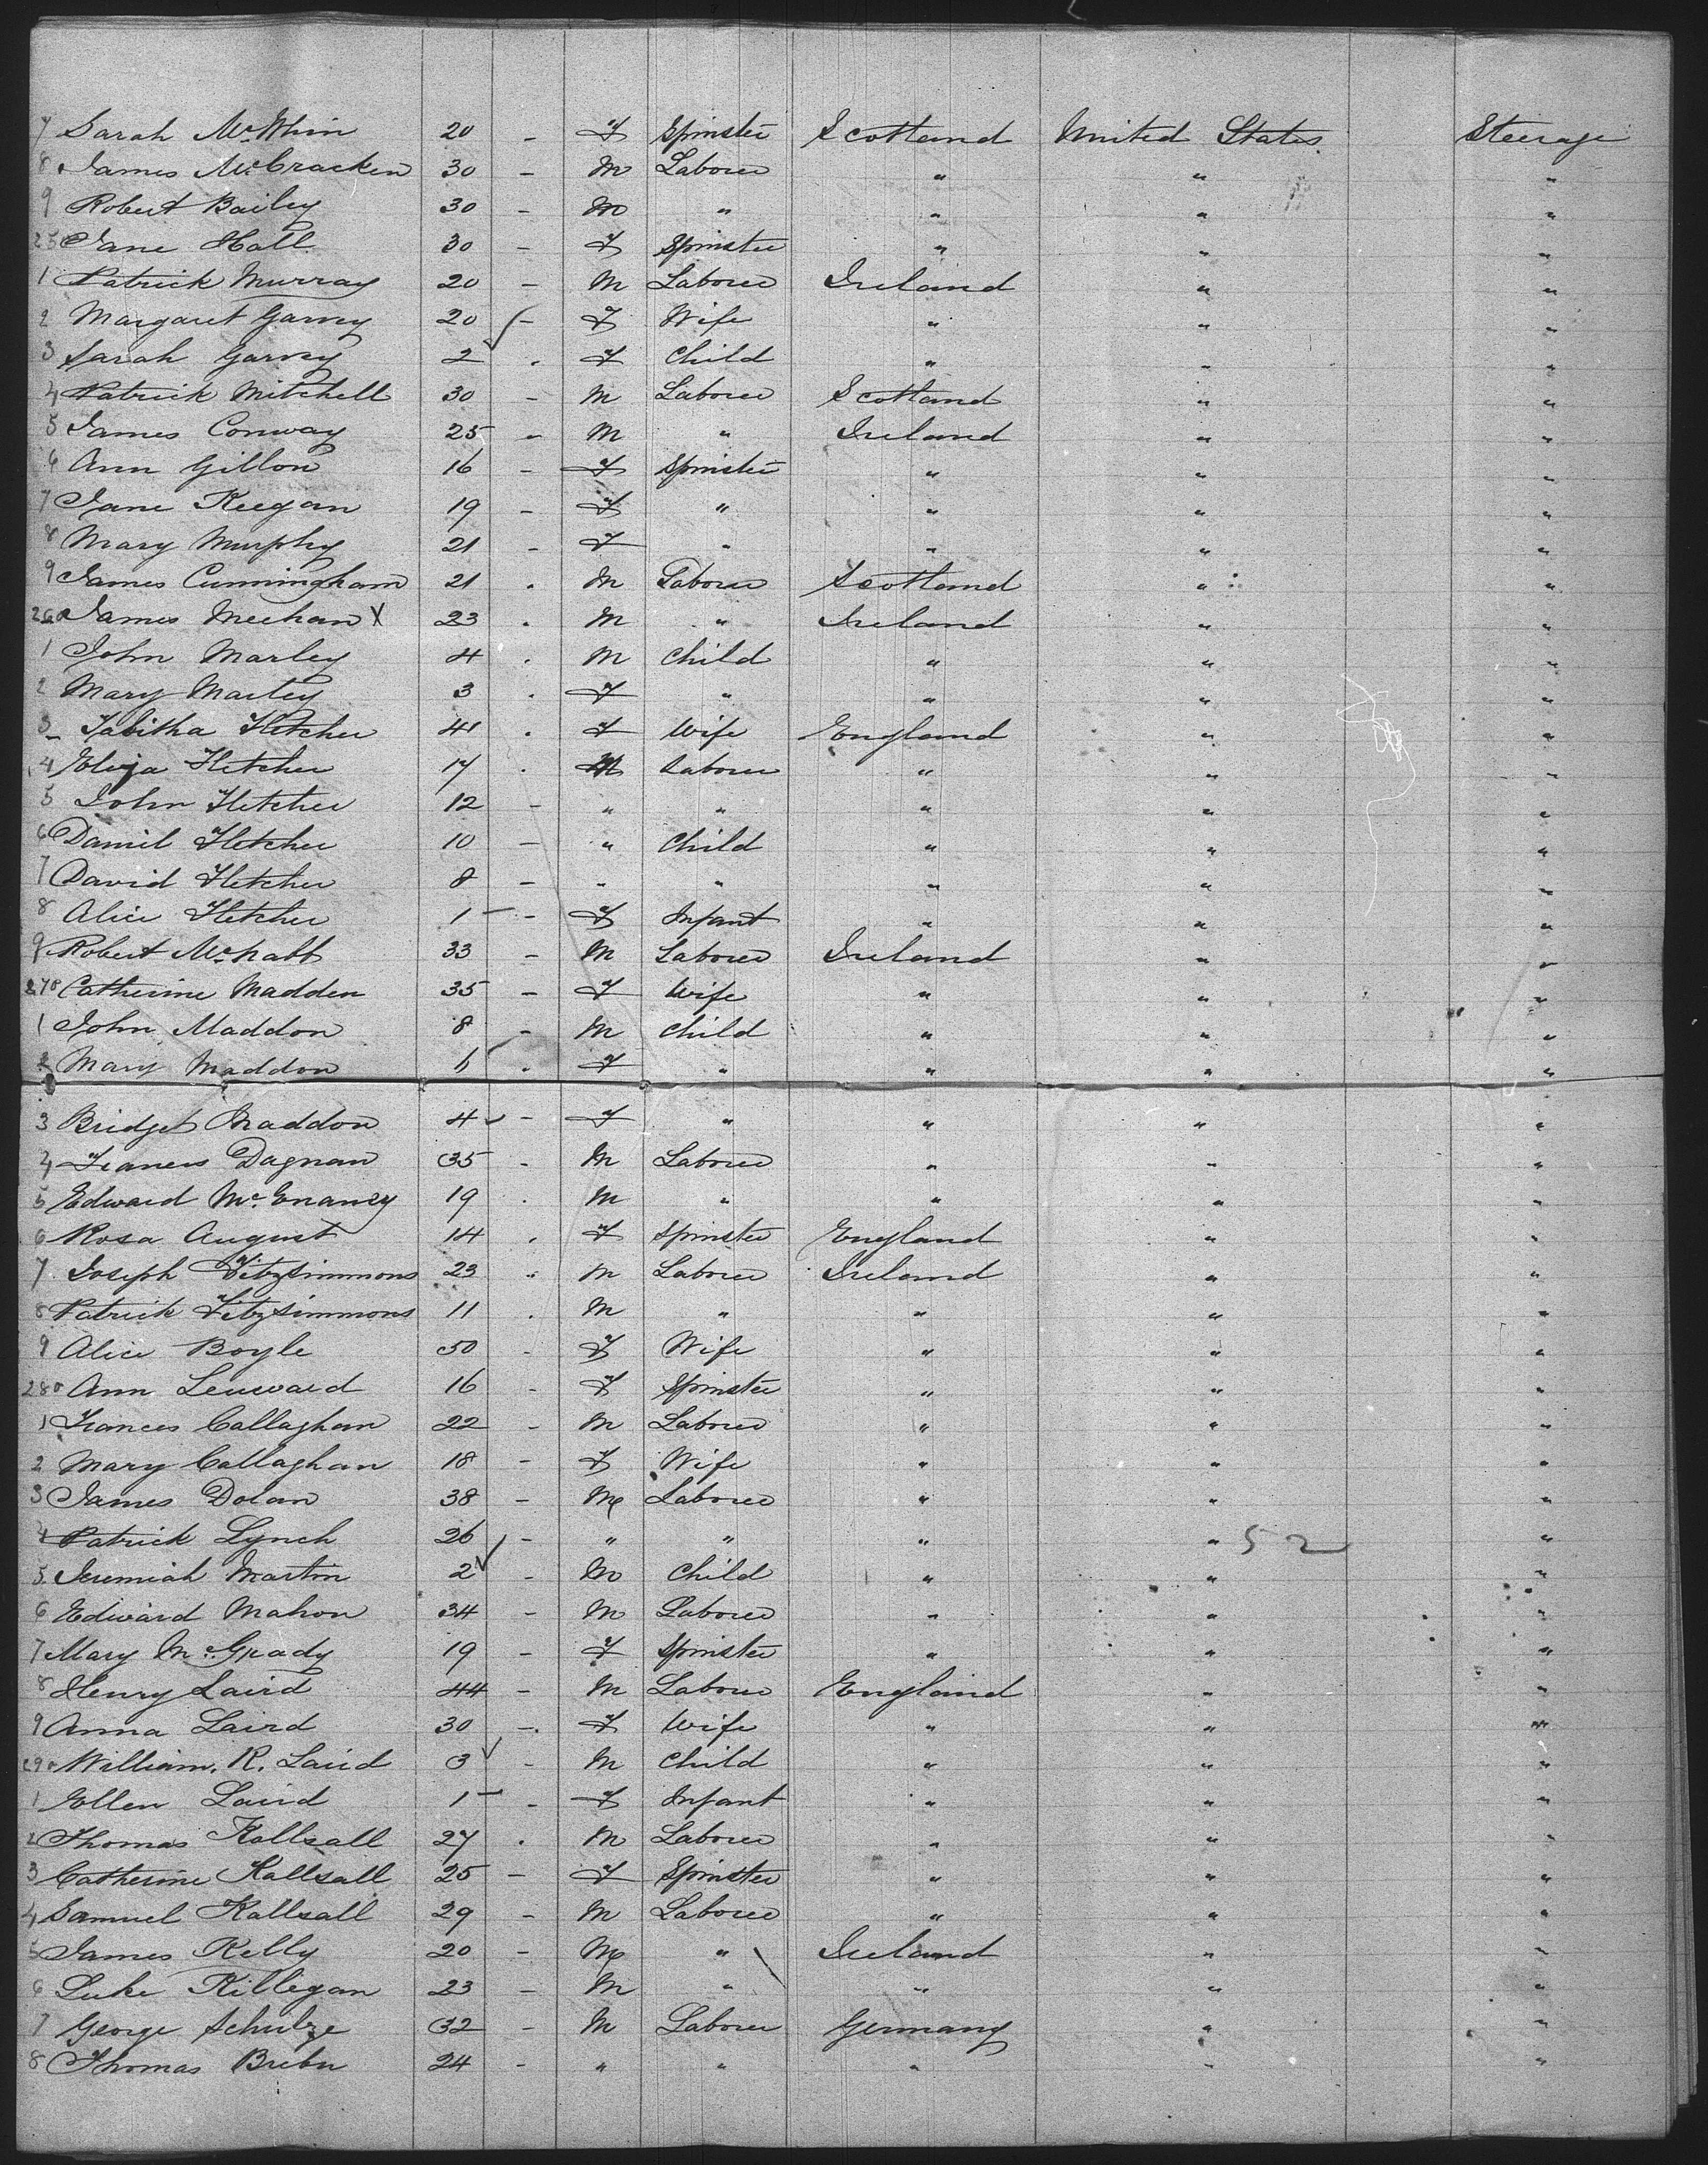 7 Sarah McWhin 20 - F Spinster Scotland United States Steerage
8 James McCracken 30 - M Laborer " " "
9 Robert Bailey 30 - M " " " "
250 Jane Hall 30 - F Spinster " " "
1 Patrick Murray 20 - M Laborer Ireland " "
2 Margaret Garvey 20 - F Wife " " "
3 Sarah Garvey 2 - F Child " " "
4 Patrick Mitchell 30 - M Laborer Scotland " "
5 James Conway 25 - M " Ireland " "
6 Ann Gillon 16 - F Spinster " " "
7 Jane Keegan 19 - F " " " "
8 Mary Murphy 21 - F " " " "
9 James Cunningham 21 - M Laborer Scotland " "
260 James Meehan X 23 - M " Ireland " "
1 John Marley 4 - M Child " " "
2 Mary Marley 3 - F " " " "
3 Tabitha Fletcher 41 - F Wife England " "
4 Eliza Fletcher 17 - M Laborer " " "
5 John Fletcher 12 - " " " " "
6 Daniel Fletcher 10 - " Child " " "
7 David Fletcher 8 - " " " " "
8 Alice Fletcher 1 - F Infant " " "
9 Robert McNabb 33 - M Laborer Ireland " "
270 Catherine Madden 35 - F Wife " " "
1 John Maddon 8 - M Child " " "
2 Mary Maddon 6 - F " " " "
3 Bridget Maddon 4 - F " " " "
4 Frances Dagnan 35 - M Laborer " " "
5 Edward McEnaney 19 - M " " " "
6 Rosa August 14 - F Spinster England " "
7 Joseph Fitzsimmons 23 " M Laborer Ireland " "
8 Patrick Fitzsimmons 11 - M " " " "
9 Alice Boyle 50 - F Wife " " "
280 Ann 16 - F Spinster " " "
1 Frances Callaghan 22 - M Laborer " " "
2 Mary Callaghan 18 - F Wife " " "
3 James Dolan 38 - M Laborer " " "
4 Patrick Lynch 26 - " " " " 52 "
5 Jeremiah Martin 2 - M Child " " "
6 Edward Mahon 34 - M Laborer " " "
7 Mary McGrady 19 - F Spinster " " "
8 Henry Laird 44 - M Laborer England " "
9 Anna Laird 30 - F Wife " " "
290 William. R. Laird 3 - M Child " " "
1 Ellen Laird 1 - F Infant " " "
2 Thomas Kallsall 27 - M Laborer " " "
3 Catherine Kallsall 25 - F Spinster " " "
4 Samuel Kallsall 29 - M Laborer " " "
5 James Kelly 20 - M " Ireland " "
6 Luke Killegan 23 - M " " " "
7 George Schulze 32 - M Laborer Germany " "
8 Thomas 24 - " " " " "